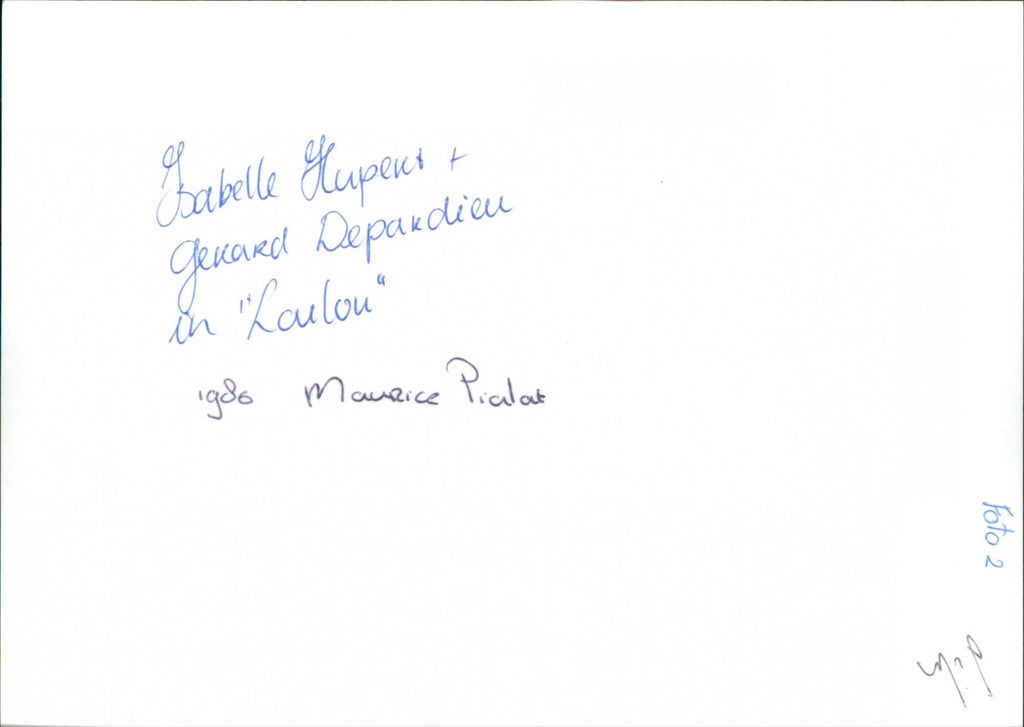 Isabelle Hupert +
Gerard Depardieu
in "Loulou"
1980 Maurice Pialat
Foto 2